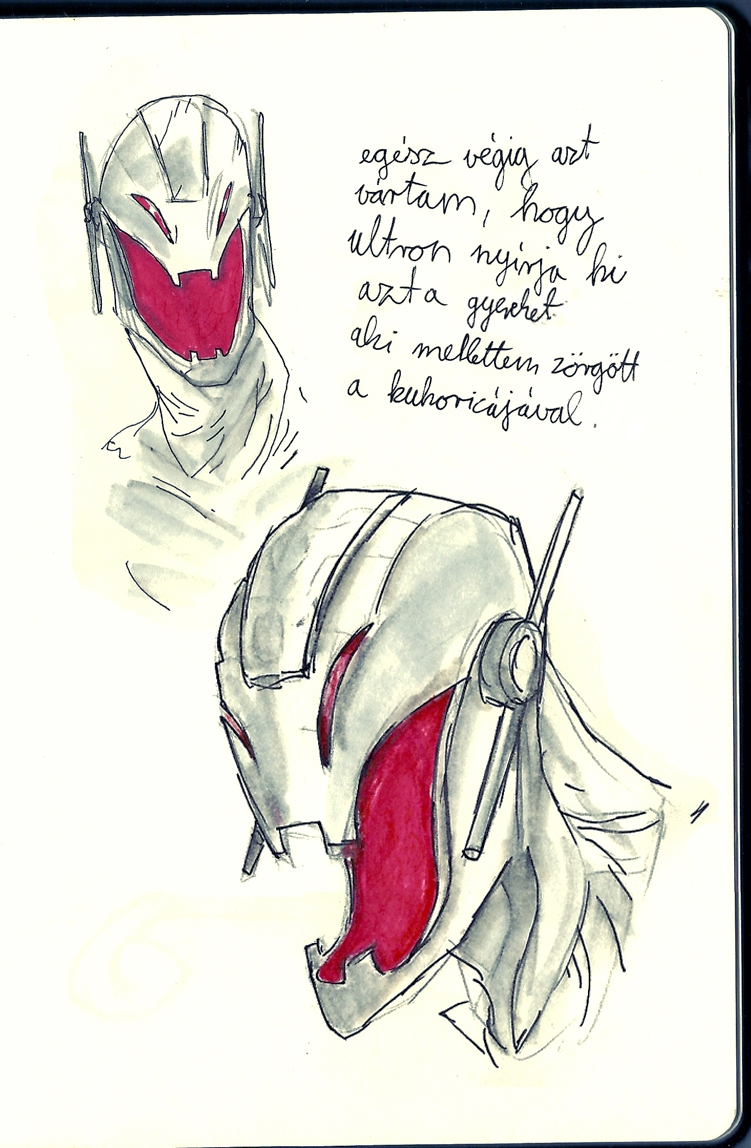 egész végig azt
vártam, hogy
ultron nyírja ki
azt a gyereket
aki mellettem zörgött
a kukoricájával.